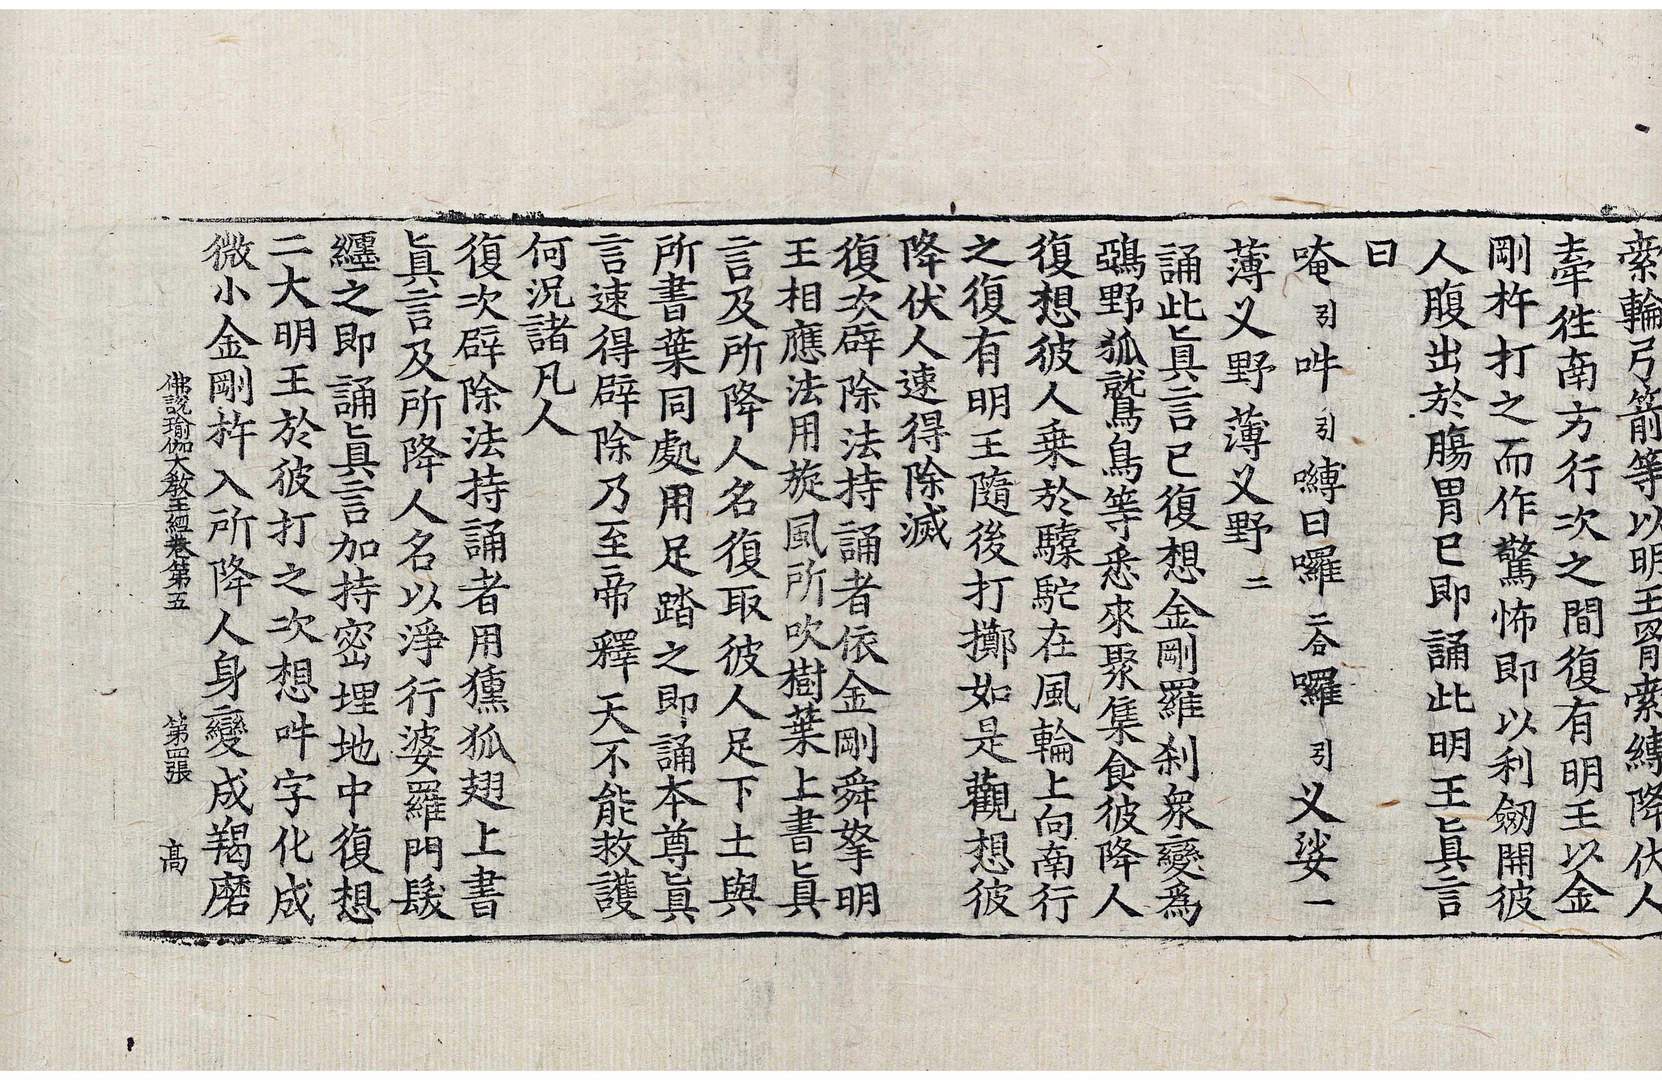 索輪弓箭等以明王罥索縛降伏人
牽徃南方行次之間復有明王以金
剛杵打之而作驚怖即以利劒開彼
人腹出於膓胃已即誦此明王眞言
曰
唵引吽引嚩日囉二合囉引义娑一
薄义野薄义野二
誦此眞言已復想金剛羅刹衆變爲
鵶野狐鷲鳥等悉來聚集食彼降人
復想彼人乗於驝駝在風輪上向南行
之復有明王隨後打擲如是觀想彼
降伏人速得除滅
復次辟除法持誦者依金剛舜拏明
王相應法用旋風所吹樹葉上書眞
言及所降人名復取彼人足下土與
所書葉同處用足踏之即誦本尊眞
言速得辟除乃至帝釋天不能救護
何況諸凡人
復次辟除法持誦者用獯狐翅上書
眞言及所降人名以淨行婆羅門髮
纒之即誦眞言加持密埋地中復想
二大明王於彼打之次想吽字化成
微小金剛杵入所降人身變成羯磨
佛說瑜伽大敎王經卷第五 第四張 高